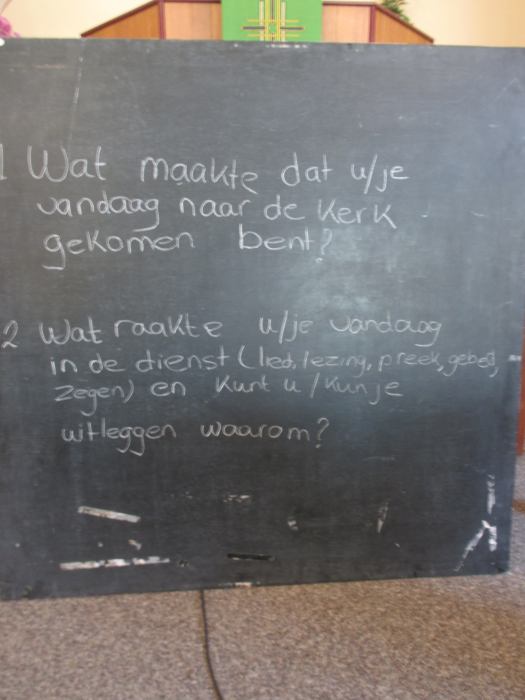 1 Wat maakte dat u/je
vandaag naar de kerk
gekomen bent?
2 Wat raakte u/je vandaag
in de dienst (lied, lezing, preek, gebed,
zegen) en kunt u/kun je
uitleggen waarom?